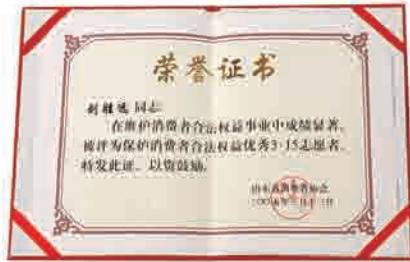 荣誉证书
同志:
在维护消费者合法权益事业中成绩显著,
被评为保护消费者合法权益优秀3·15志愿者。
特发此证,以资鼓励。
山东省消费者协会